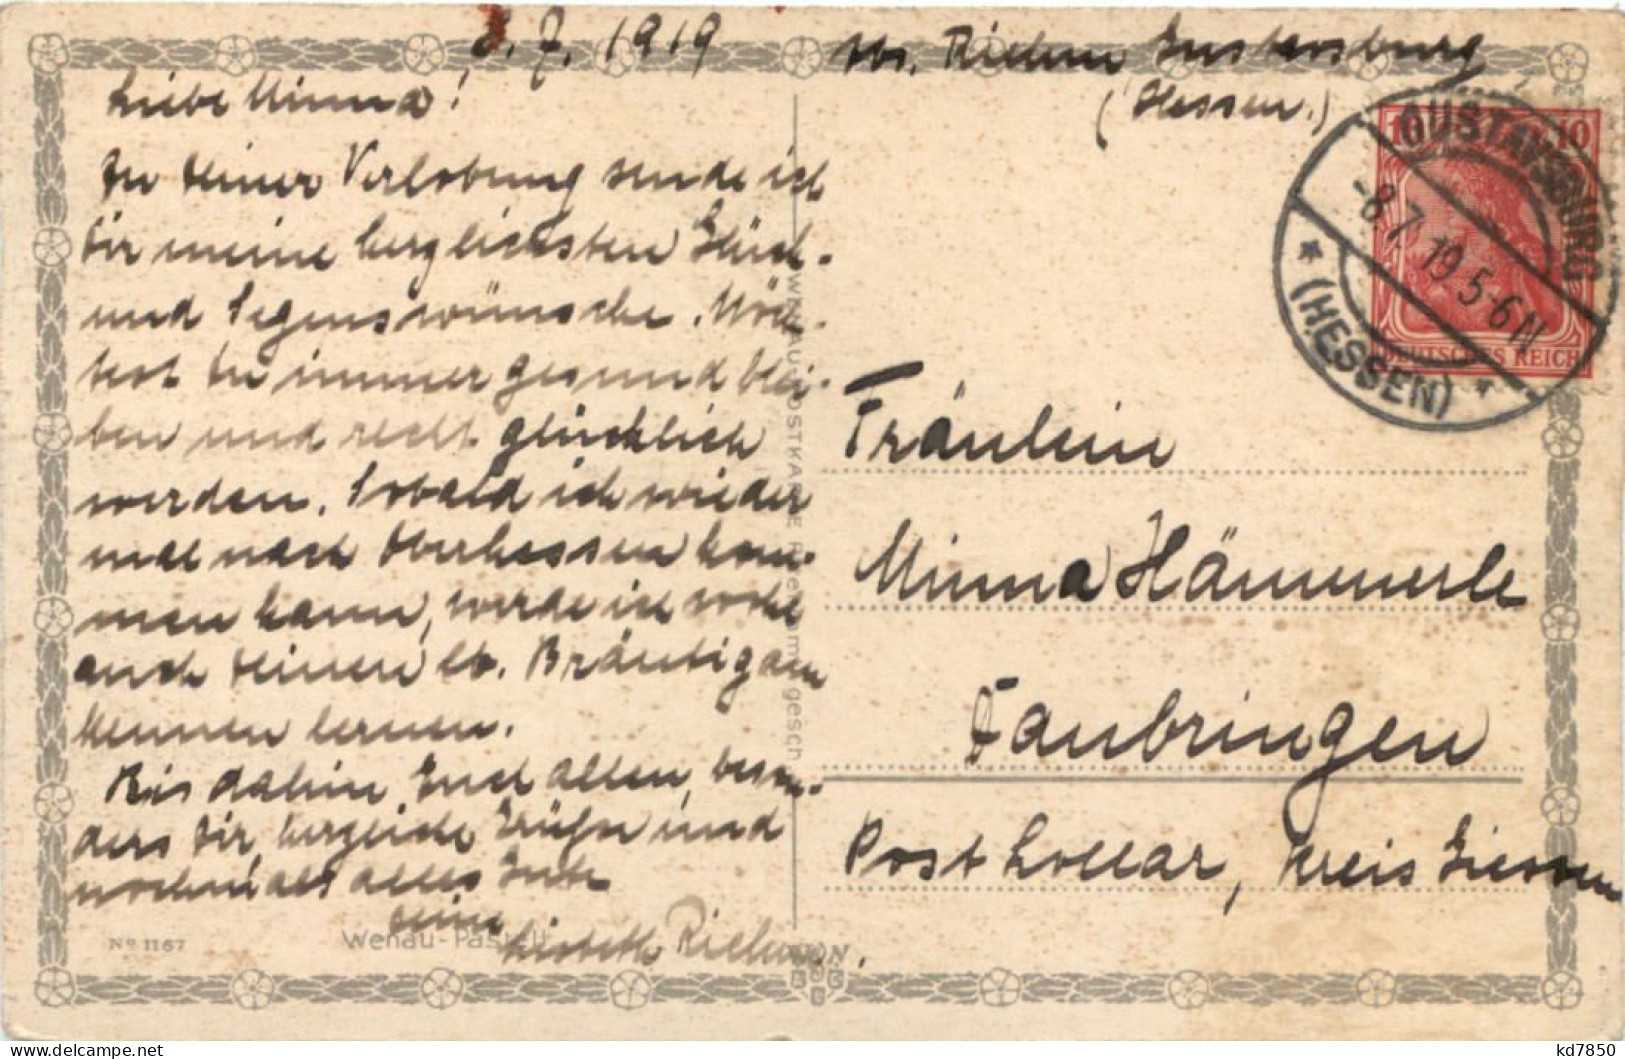 8.7.1919
Abs. Riehm Gustavsburg
(Hessen.)
Liebe Minna!
Zu Deiner Verlobung sende ich
Dir meine herzlichsten Glück-
und Segenswünsche. Möch-
test Du immer gesund blei-
ben und recht glücklich
werden. Sobald ich wieder
mal nach Oberhessen kom-
men kann, werde ich wohl
auch Deinen lb. Bräutigam
kennen lernen.
Bis dahin Euch allen, beson-
ders Dir, herzliche Grüße und
nochmals alles Gute
Deine
Lisbeth Riehm.
GUSTAVSBURG
-8.7.19.5-6N
* (HESSEN) *
10 10
DEUTSCHES REICH
Fräulein
Minna Hämmerle
Daubringen
Post Lollar, Kreis Giessen
No 1167
Wenau-Pastell
kd7850